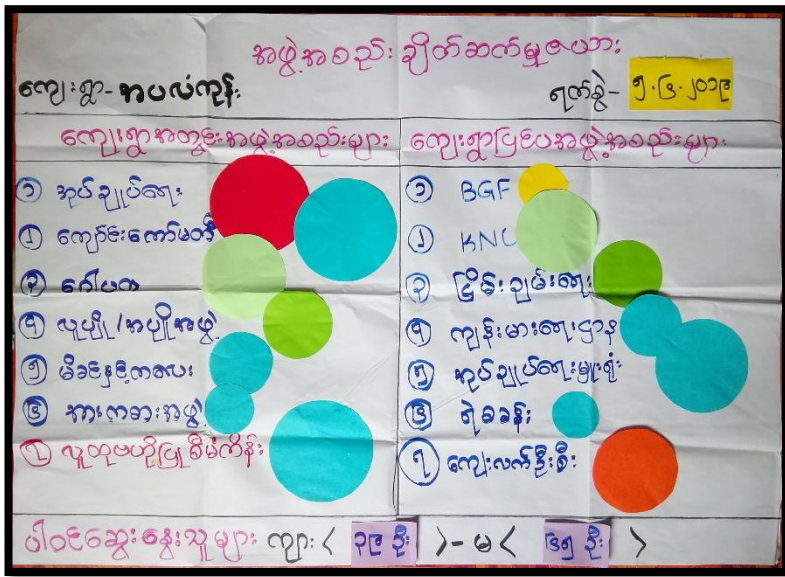 အဖွဲ့အစည်း ချိတ်ဆက်မှုဇယား
ကျေးရွာ - အပလံကုန်း
ရက်စွဲ - ၅.၆.၂၀၁၉
ကျေးရွာအတွင်းအဖွဲ့အစည်းများ
၁ အုပ်ချုပ်ရေး
၂ ကျောင်းကော်မတီ
၃ ဂေါပက
၄ လူပျို/အပျိုအဖွဲ့
၅ မိခင်နှင့်ကလေး
၆ အားကစားအဖွဲ့
၇ လူထုဗဟိုပြုစီမံကိန်း
ကျေးရွာပြင်ပအဖွဲ့အစည်းများ
၁ BGF
၂ KNU
၃ ငြိမ်းချမ်းရေး
၄ ကျန်းမာရေးဌာန
၅ အုပ်ချုပ်ရေးမှူးရုံး
၆ ရဲစခန်း
၇ ကျေးလက်ဦးစီး
ပါဝင်ဆွေးနွေးသူများ ကျား < ၃၉ ဦး > - မ < ၆၅ ဦး >